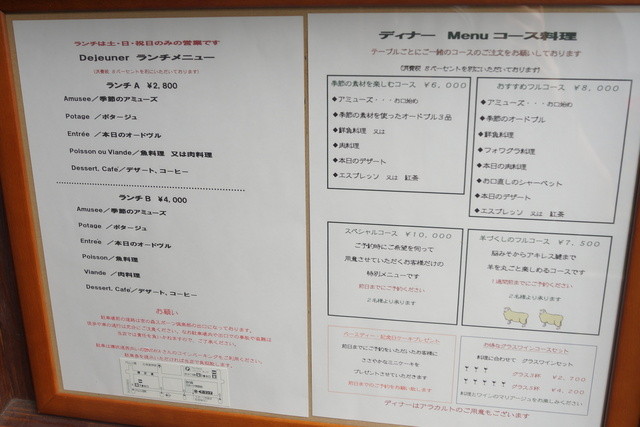 ランチは土・日・祝日のみの営業です
Dejeuner ランチメニュー
ランチ A ¥2,800
Amusee／季節のアミューズ
Potage ／ポタージュ
Entrée ／本日のオードヴル
Poisson ou Viande／魚料理 又は肉料理
Dessert, Cafe／デザート, コーヒー
ランチ B ¥4,000
Amusee／季節のアミューズ
Potage ／ポタージュ
Entrée ／本日のオードヴル
Poisson／魚料理
Viande ／肉料理
Dessert, Cafe／デザート, コーヒー
お願い
ディナー Menu コース料理
テーブルごとにご一緒のコースのご注文をお願いしております
季節の素材を楽しむコース ¥6,000
◆アミューズ・・・お口始め
◆季節の素材を使ったオードブル3品
◆鮮魚料理 又は
◆肉料理
◆本日のデザート
◆エスプレッソ 又は 紅茶
おすすめフルコース ¥8,000
◆アミューズ・・・お口始め
◆季節のオードブル
◆鮮魚料理
◆フォワグラ料理
◆本日の肉料理
◆お口直しのシャーベット
◆本日のデザート
◆エスプレッソ 又は 紅茶
スペシャルコース ¥10,000
ご予約時にご希望を伺って
用意させていただくお客様だけの
特別メニューです
前日までにご予約ください
2名様より承ります
羊づくしのフルコース ¥7,500
脳みそからアキレス腱まで
羊を丸ごと楽しめるコースです
1週間前までにご予約ください
2名様より承ります
前日までにご予約をいただいたお客様に
ささやかなミニケーキを
プレゼントさせていただきます
前日までのご予約をお願い致します
お得なグラスワインコースセット
料理に合わせて グラスワインセット
グラス3杯 ¥2,700
グラス5杯 ¥4,200
料理とワインのマリアージュをお楽しみください
ディナーはアラカルトのご用意もございます